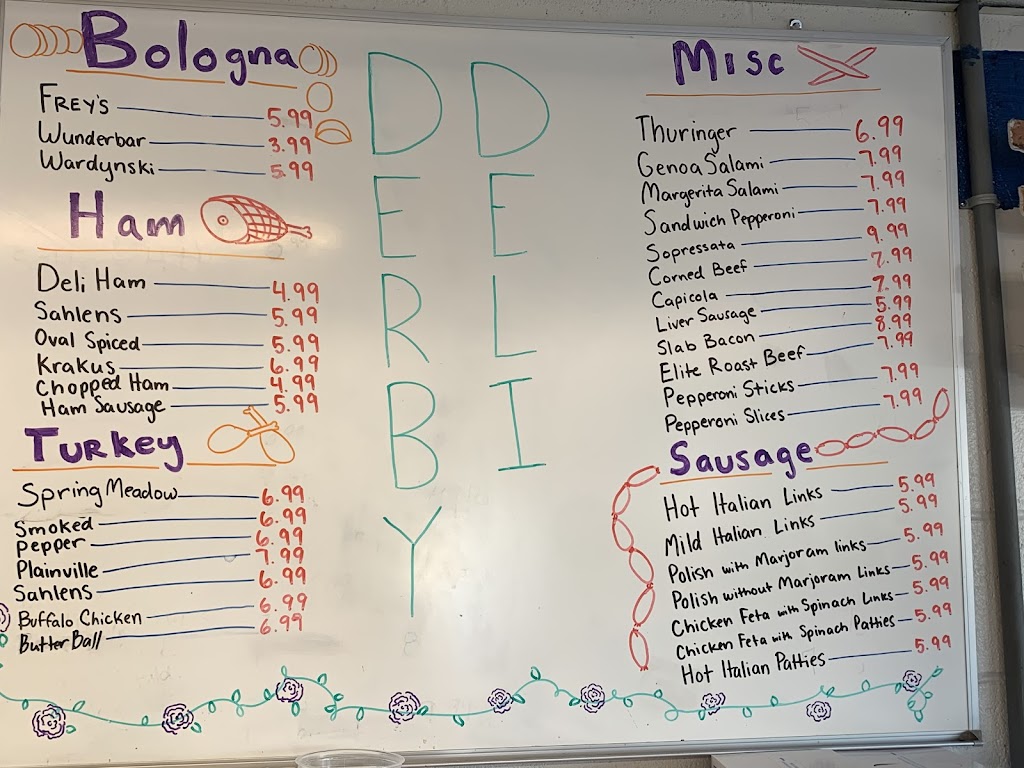 Bologna
FREY'S 5.99
Wunderbar 3.99
Wardynski 5.99
Ham
Deli Ham 4.99
Sahlens 5.99
Oval Spiced 5.99
Krakus 6.99
Chopped Ham 4.99
Ham Sausage 5.99
TURKEY
Spring Meadow 6.99
Smoked 6.99
Pepper 6.99
Plainville 7.99
Sahlens 6.99
Buffalo Chicken 6.99
Butter Ball 6.99
DERBY
DELI
Misc
Thuringer 6.99
Genoa Salami 7.99
Margerita Salami 7.99
Sandwich Pepperoni 7.99
Sopressata 9.99
Corned Beef 7.99
Capicola 7.99
Liver Sausage 5.99
Slab Bacon 8.99
Elite Roast Beef 7.99
Pepperoni Sticks 7.99
Pepperoni Slices 7.99
Sausage
Hot Italian Links 5.99
Mild Italian Links 5.99
Polish with Marjoram links 5.99
Polish without Marjoram Links 5.99
Chicken Feta with Spinach Links 5.99
Chicken Feta with Spinach Patties 5.99
Hot Italian Patties 5.99